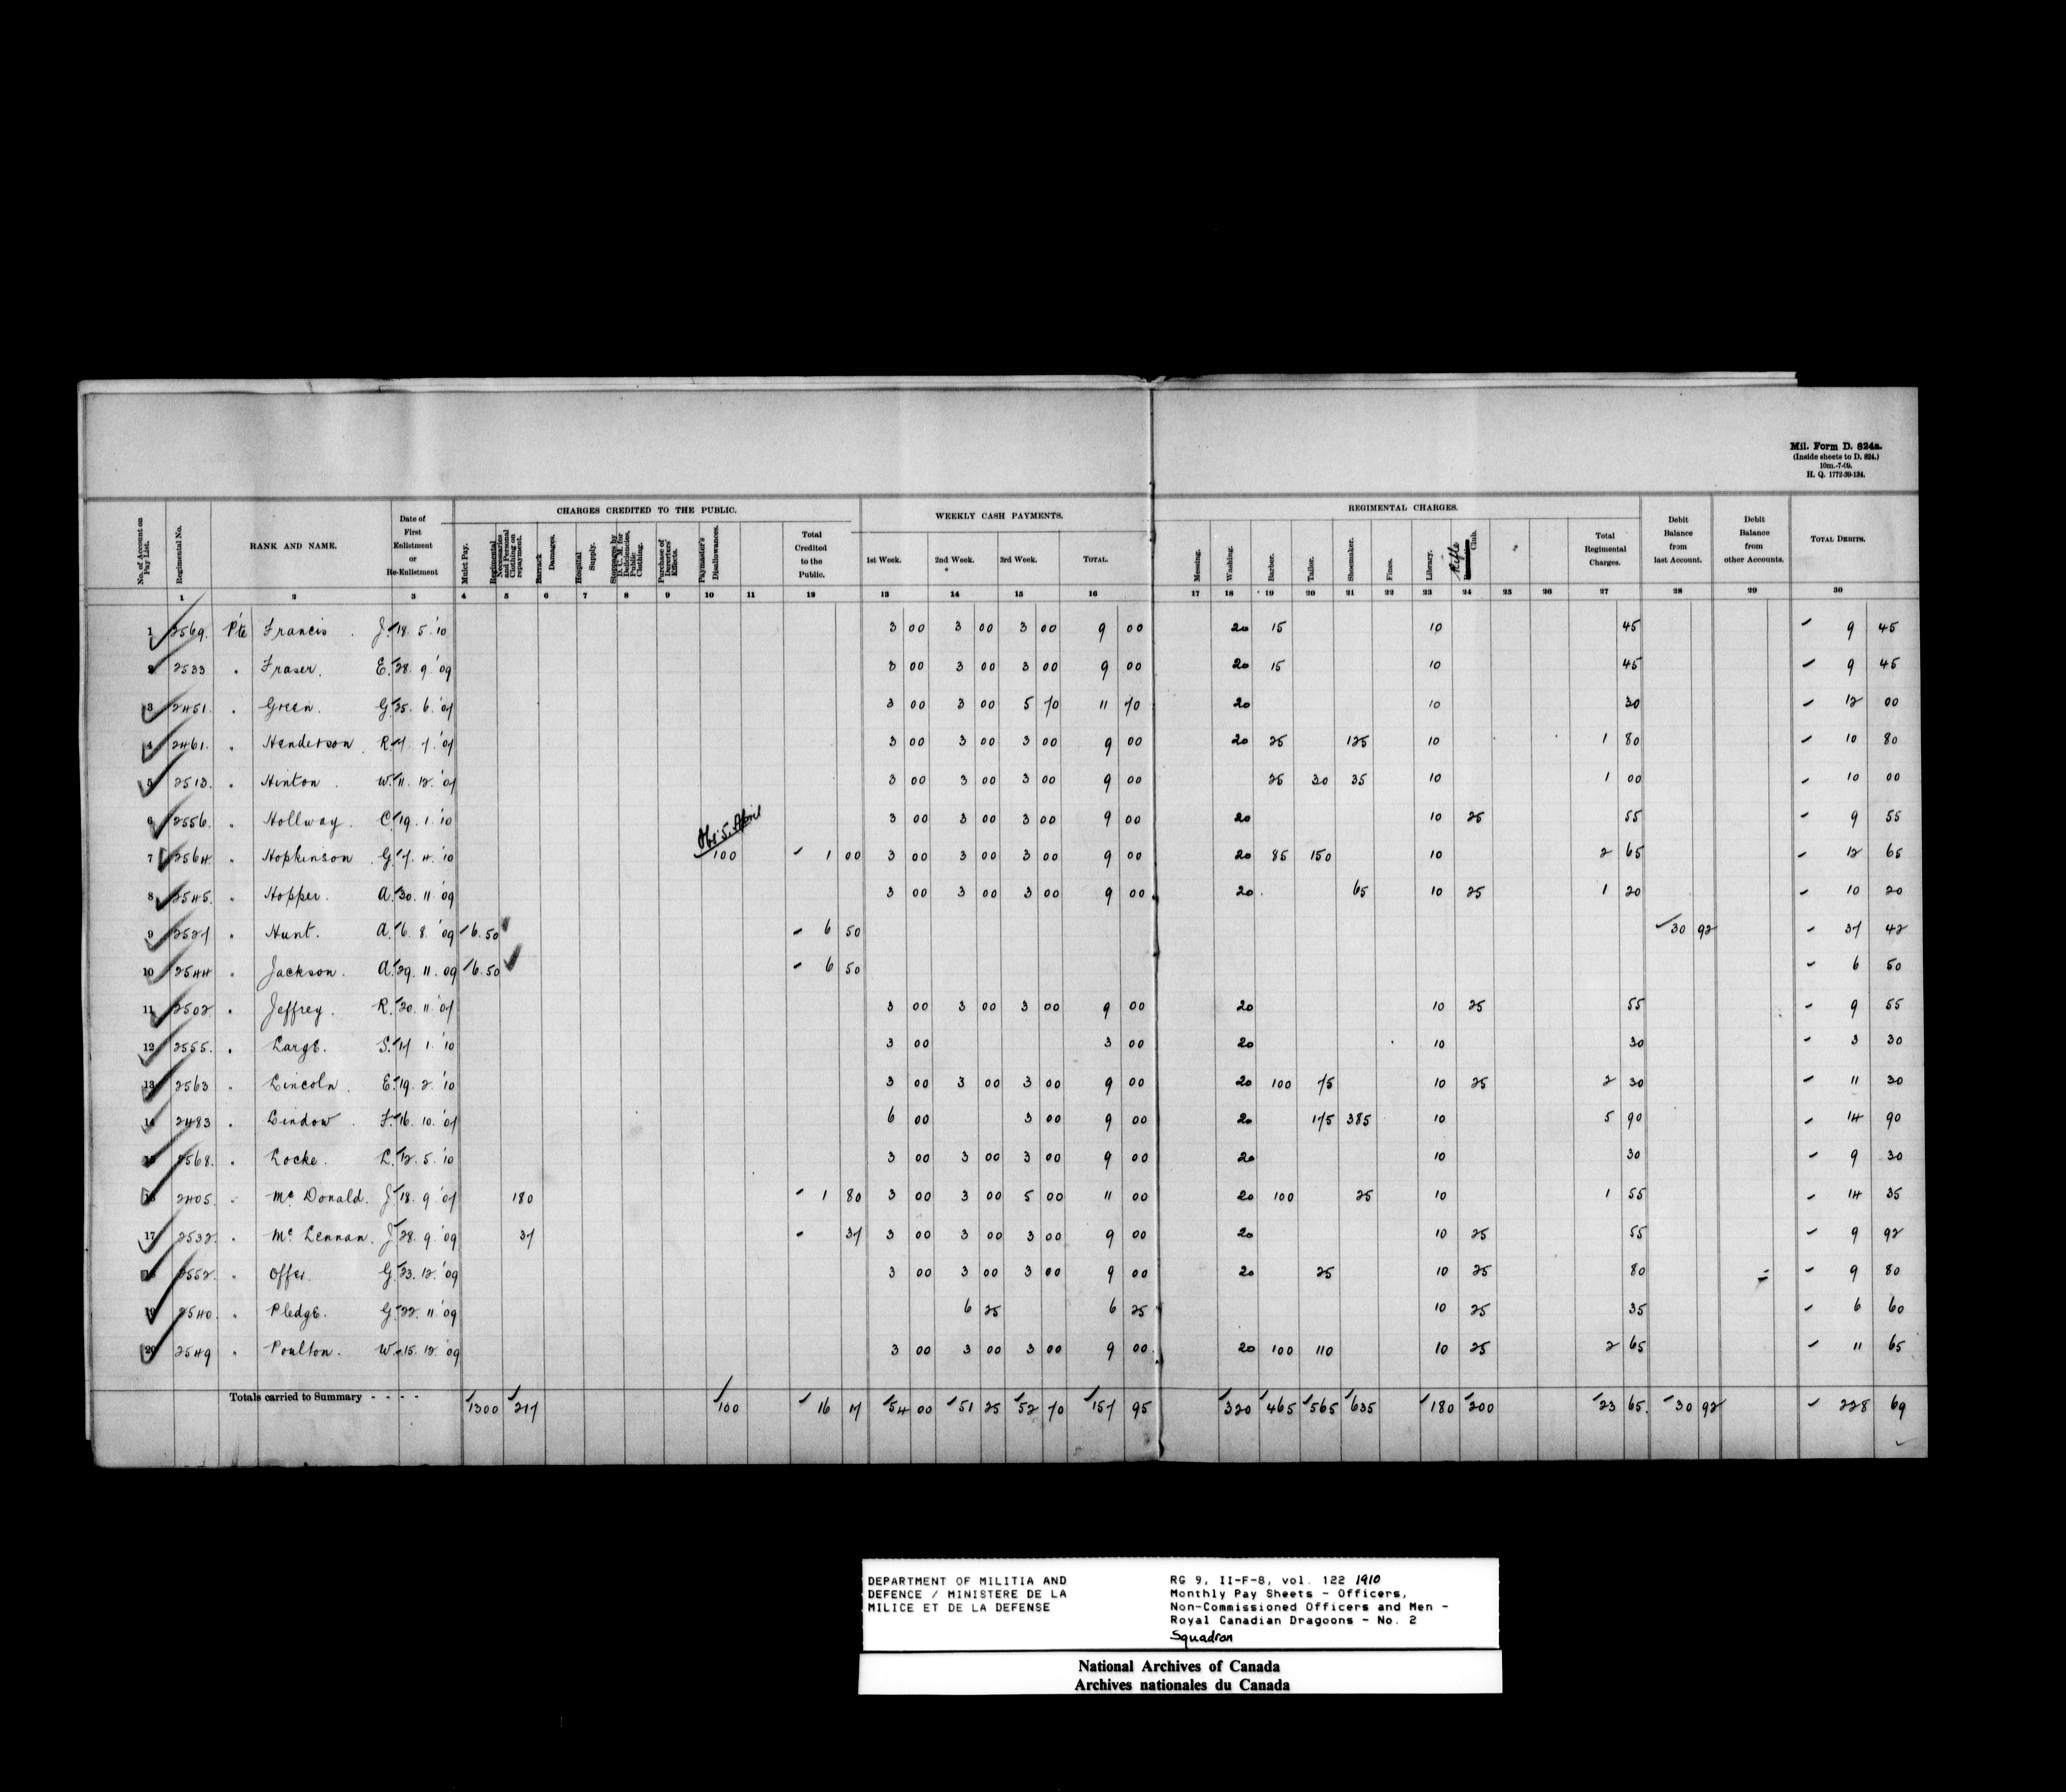 Mil. Form D. 824a.
(Inside sheets to D. 824.)
10m.-7-09.
H. Q. 1772-39-134.
CHARGES CREDITED TO THE PUBLIC. WEEKLY CASH PAYMENTS. REGIMENTAL CHARGES.
No. of Account on Pay List. Regimental No. RANK AND NAME. Date of First Enlistment or Re-Enlistment Mulct Pay. Regimental Necessaries and Personal Clothing on repayment. Barrack Damages. Hospital Supply. Stoppages by D. C. M. for Deficiencies, Public Clothing. Purchase of Deserters' Effects. Paymaster's Disallowances. Total Credited to the Public. 1st Week. 2nd Week. 3rd Week. TOTAL. Messing. Washing. Barber. Tailor. Shoemaker. Fines. Library. Rifle Club. Total Regimental Charges. Debit Balance from last Account. Debit Balance from other Accounts. TOTAL DEBITS.
1 2 3 4 5 6 7 8 9 10 11 12 13 14 15 16 17 18 19 20 21 22 23 24 25 26 27 28 29 30
1 2569. Pte Francis. J. 18. 5. '10 3 00 3 00 3 00 9 00 20 15 10 45 9 45
2 2533 " Fraser. E. 28. 9. '09 3 00 3 00 3 00 9 00 20 15 10 45 9 45
3 2451. " Green. G. 25. 6. '07 3 00 3 00 5 70 11 70 20 10 30 12 00
4 2461. " Henderson. R. 7. 7. '07 3 00 3 00 3 00 9 00 20 25 125 10 1 80 10 80
5 2513. " Hinton. W. 11. 12. '07 3 00 3 00 3 00 9 00 25 30 35 10 1 00 10 00
6 2556. " Hollway. C. 19. 1. '10 3 00 3 00 3 00 9 00 20 10 25 55 9 55
7 2564. " Hopkinson. G. 7. 4. '10 Obs: 5. April 100 1 00 3 00 3 00 3 00 9 00 20 85 150 10 2 65 12 65
8 2545. " Hopper. A. 30. 11. '09 3 00 3 00 3 00 9 00 20 65 10 25 1 20 10 20
9 2527 " Hunt. A. 6. 8. '09 6.50 6 50 30 92 37 42
10 2544 " Jackson. A. 29. 11. 09 6.50 6 50 6 50
11 2502. " Jeffrey. R. 20. 11. '07 3 00 3 00 3 00 9 00 20 10 25 55 9 55
12 2555. " Large. S. 17 1. '10 3 00 3 00 20 10 30 3 30
13 2563 " Lincoln. E. 19. 2. '10 3 00 3 00 3 00 9 00 20 100 75 10 25 2 30 11 30
14 2483 " Lindow. F. 16. 10. '07 6 00 3 00 9 00 20 175 385 10 5 90 14 90
15 2568. " Locke. L. 12. 5. '10 3 00 3 00 3 00 9 00 20 10 30 9 30
16 2405. " McDonald. J. 18. 9. '07 180 1 80 3 00 3 00 5 00 11 00 20 100 25 10 1 55 14 35
17 2532. " McLennan. J. 28. 9. '09 37 37 3 00 3 00 3 00 9 00 20 10 25 55 9 92
18 2552. " Offer. G. 23. 12. '09 3 00 3 00 3 00 9 00 20 25 10 25 80 9 80
19 2540. " Pledge. G. 22. 11. '09 6 25 6 25 10 25 35 6 60
20 2549 " Poulton. W. 15. 12. '09 3 00 3 00 3 00 9 00 20 100 110 10 25 2 65 11 65
Totals carried to Summary - - - - 1300 217 100 16 17 54 00 51 25 52 70 157 95 320 465 565 635 180 200 23 65. 30 92 228 69
DEPARTMENT OF MILITIA AND
DEFENCE / MINISTERE DE LA
MILICE ET DE LA DEFENSE
RG 9, II-F-8, vol. 122 1910
Monthly Pay Sheets - Officers,
Non-Commissioned Officers and Men -
Royal Canadian Dragoons - No. 2
Squadron
National Archives of Canada
Archives nationales du Canada